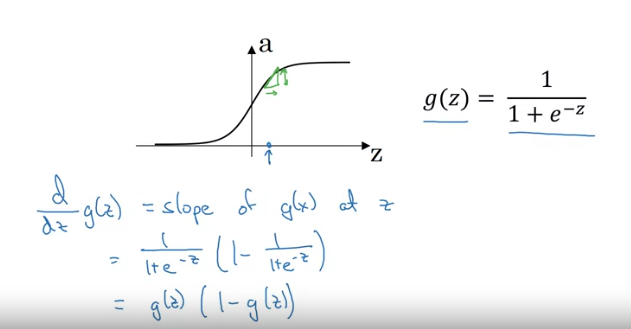 a
g(z) = 1 / (1 + e^{-z})
z
d/dz g(z) = slope of g(x) at z
= 1/(1+e^{-z}) (1 - 1/(1+e^{-z}))
= g(z) (1 - g(z))